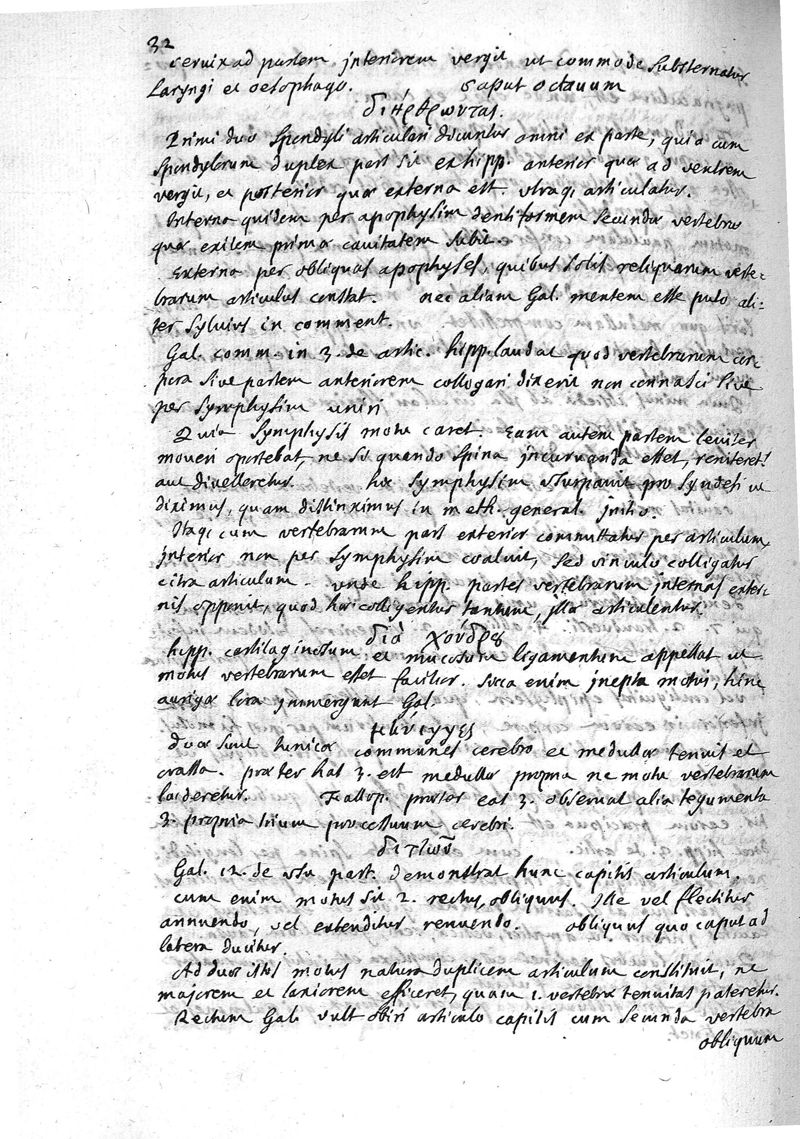 32
cervix ad partem interiorem vergit ut commode substernatur
Laryngi et oesophago. Caput octauum
διήρθρωνται.
Primi duo Spondyli articulari dicuntur omni ex parte, quia cum
Spondylorum duplex pars sit ex hipp. anterior quae ad ventrem
vergit, et posterior quae externa est. utraq; articulatur.
Interna quidem per apophysim dentiformem secundae vertebrae
quae exilem primae cavitatem subit.
Externa per obliquas apophyses, quibus solis reliquarum verte-
brarum articulus constat. nec aliam Gal. mentem esse puto ali-
ter Sylvius in comment.
Gal. comm. in 3. de artic. hipp. laudat quod vertebrarum cor-
pora sive partem anteriorem colligari dixerit non connasci sive
per symphysim uniri
Quia Symphysis motu caret. Eam autem partem leviter
moveri oportebat, ne si quando spina incurvanda esset, reniteret.
aut divelleretur. hic Symphysim usurpavit pro Syndesi ut
diximus, quam distinximus in meth. general. initio.
Itaq; cum vertebrarum pars exterior committatur per articulum,
interior non per Symphysim coaluit, sed vinculo colligatur
citra articulum. unde hipp. partes vertebrarum internas exter-
nis opponit, quod hae colligentur tantum, illae articulentur.
διὰ χόνδρȣ
hipp. cartilaginosum et mucosum ligamentum appellat ut
motus vertebrarum esset facilior. sicca enim inepta motui, hinc
aurigae lora immergunt Gal.
μήνιγγες
Duae sunt tunicae communes cerebro et medullae tenuis et
crassa. praeter has 3. est medullae propria ne motu vertebrarum
laederetur. Fallop. praeter eas 3. observat alia tegumenta
3. propria trium processuum cerebri.
διττῶς
Gal. 12. de usu part. demonstrat hunc capitis articulum.
cum enim motus sit 2. rectus, obliquus. Ille vel flectitur
annuendo, vel extenditur renuendo. obliquus quo caput ad
latera ducitur.
Ad duos istos motus natura duplicem articulum constituit, ne
majorem et laxiorem efficeret, quam 1. vertebrae tenuitas pateretur.
Rectum Gal. vult obiri articulo capitis cum secunda vertebra
obliquum